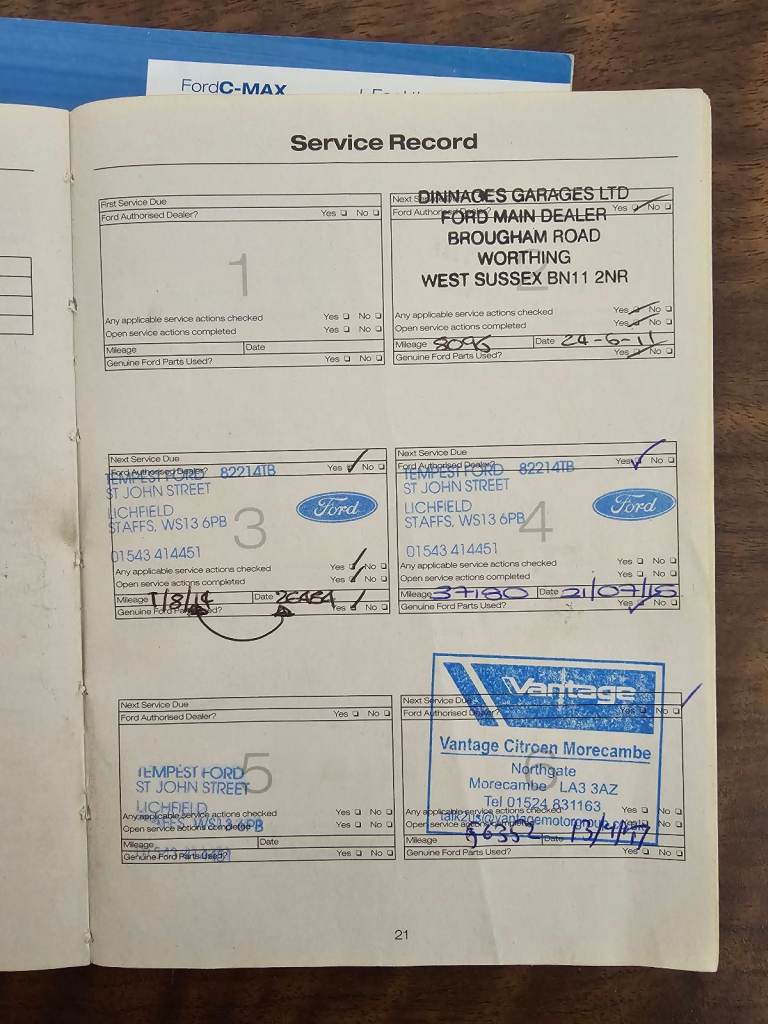 FordC-MAX
Service Record
First Service Due
Ford Authorised Dealer? Yes No
1
Any applicable service actions checked Yes No
Open service actions completed Yes No
Mileage Date
Genuine Ford Parts Used? Yes No
DINNAGES GARAGES LTD
Ford Authorised Dealer? Yes No
FORD MAIN DEALER
BROUGHAM ROAD
WORTHING
2
WEST SUSSEX BN11 2NR
Any applicable service actions checked Yes No
Open service actions completed Yes No
Mileage 8096 Date 24-6-11
Genuine Ford Parts Used? Yes No
Next Service Due
Ford Authorised Dealer? Yes No
TEMPEST FORD 82214TB
ST JOHN STREET
Ford
LICHFIELD
STAFFS, WS13 6PB
3
01543 414451
Any applicable service actions checked Yes No
Open service actions completed Yes No
Mileage 1/8/14 Date
Genuine Ford Parts Used? Yes No
Next Service Due
Ford Authorised Dealer? Yes No
TEMPEST FORD 82214TB
ST JOHN STREET
Ford
LICHFIELD
STAFFS, WS13 6PB
4
01543 414451
Any applicable service actions checked Yes No
Open service actions completed Yes No
Mileage 37180 Date 21/07/15
Genuine Ford Parts Used? Yes No
Next Service Due
Ford Authorised Dealer? Yes No
5
TEMPEST FORD
ST JOHN STREET
LICHFIELD
Any applicable service actions checked Yes No
STAFFS, WS13 6PB
Open service actions completed Yes No
Mileage Date
Genuine Ford Parts Used? Yes No
Vantage
Next Service Due
Ford Authorised Dealer? Yes No
Vantage Citroen Morecambe
6
Northgate
Morecambe LA3 3AZ
Tel 01524 831163
Any applicable service actions checked Yes No
Open service actions completed Yes No
Mileage Date 13/4/17
Genuine Ford Parts Used? Yes No
21